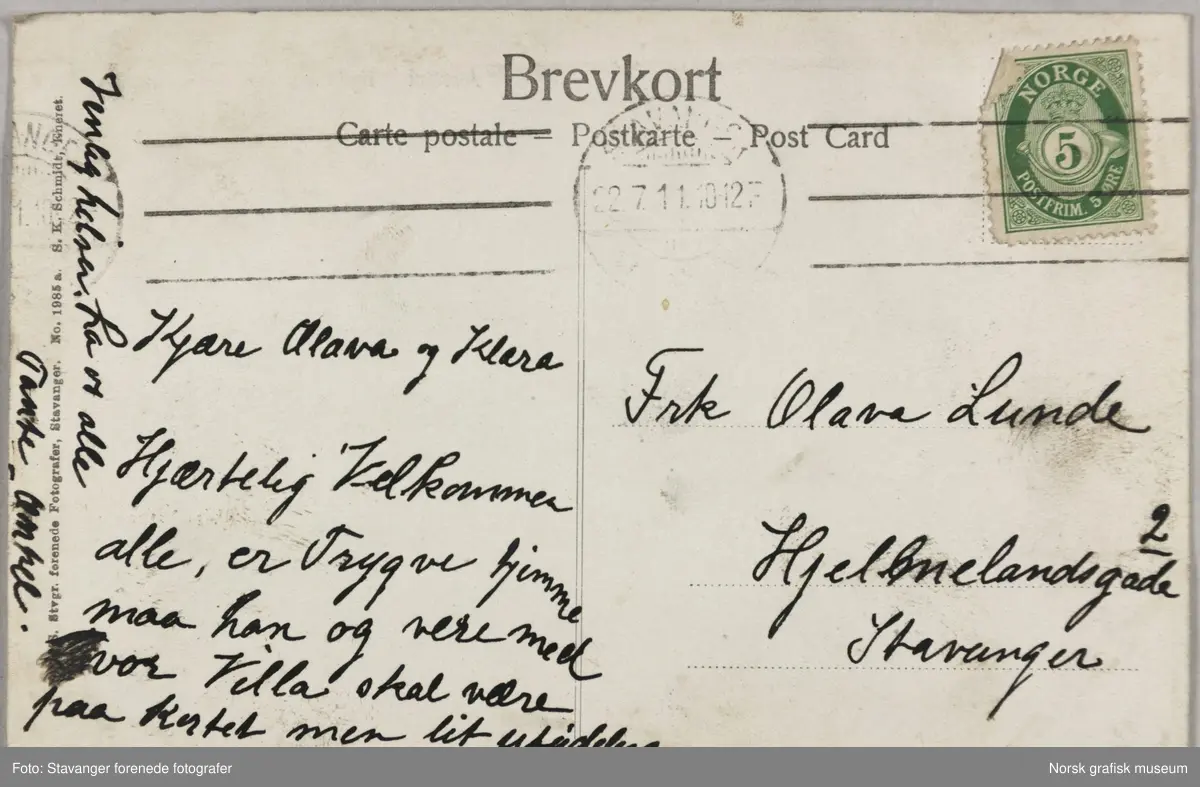 Brevkort
Carte postale – Postkarte – Post Card
NORGE
5
POSTFRIM. 5 ØRE
22.7.11.10-12 F
Kjære Olava og Klara
Hjærtelig Velkommen
alle, er Trygve hjimme
maa han og være med
vor Villa skal være
paa kortet men lit utydelig
Innlig helsen fra os alle
Tante Onkel.
Frk Olava Lunde
Hjelmelandsgade 21
Stavanger
Stvgr. forenede Fotografer, Stavanger. No. 1985 a. S. K. Schmidt, Eneret.
Foto: Stavanger forenede fotografer
Norsk grafisk museum